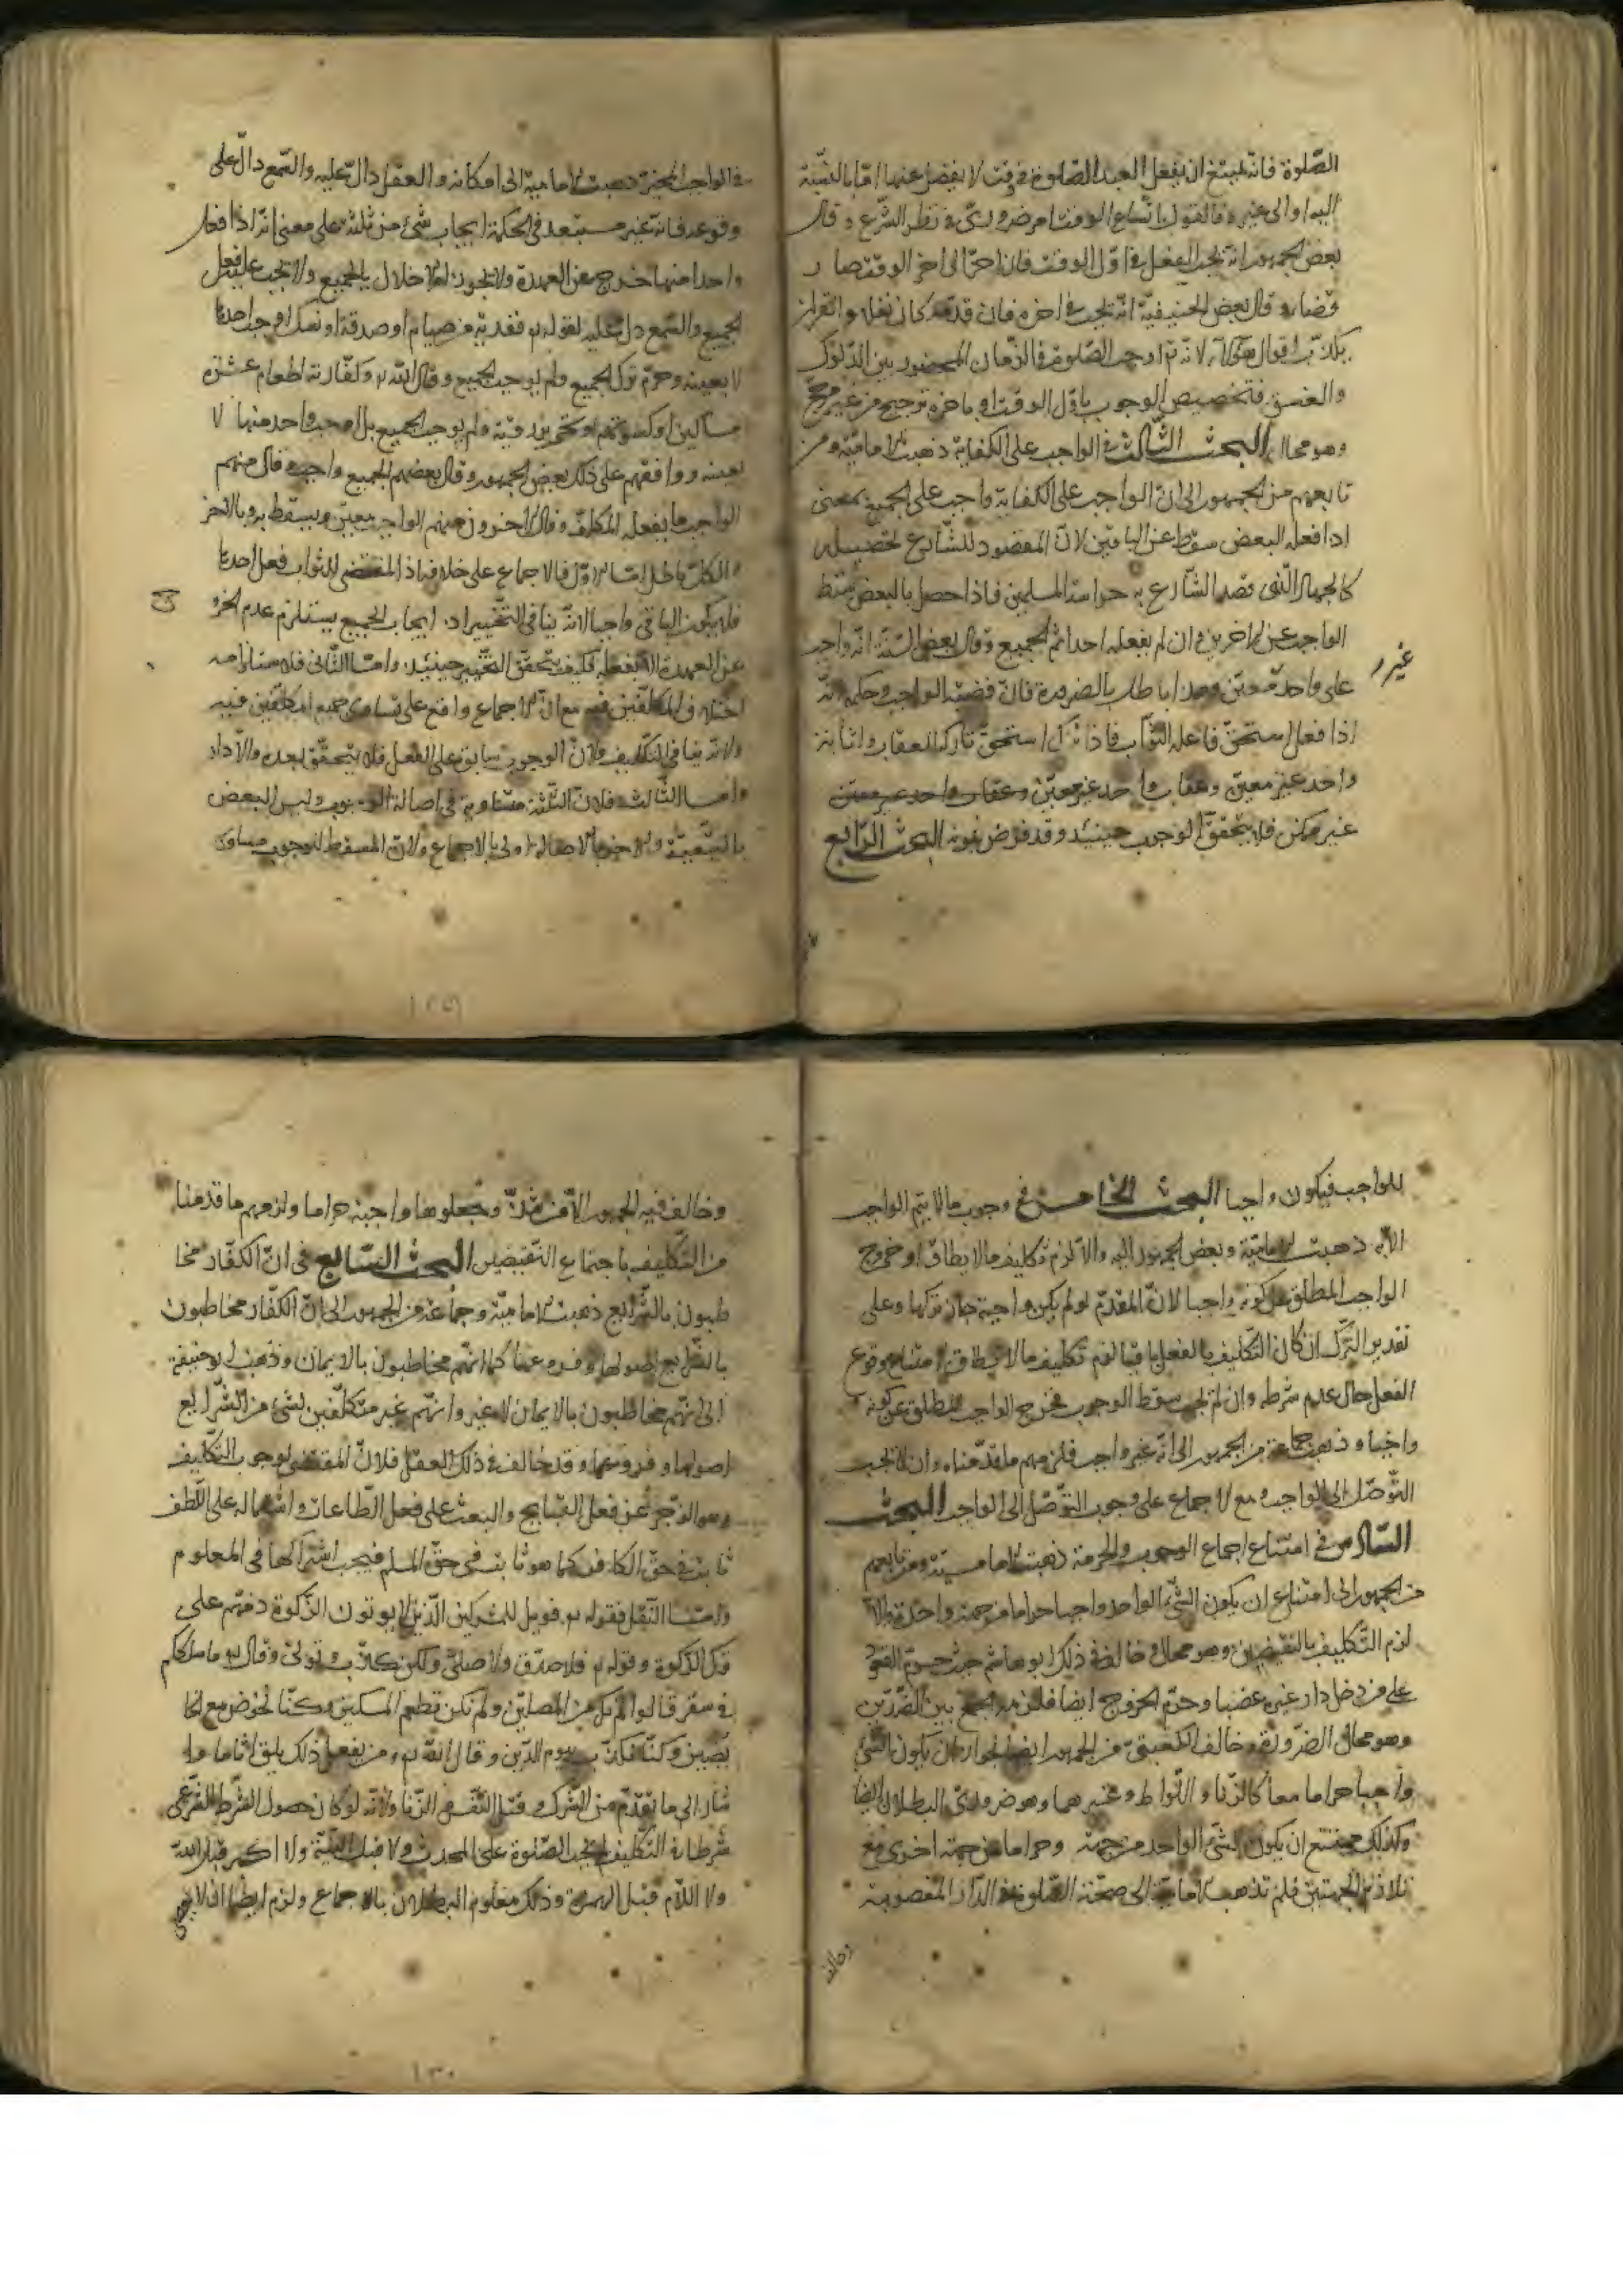 الصّلوة فانّه يمتنع ان يفعل العبد الصّلوة فى وقت لا يفضل عنها امّا بالنسبة
اليه او الى غيره فالقول باتّساع الوقت امر ضرورىّ فى نظر الشّرع وقال
بعض الجمهور انّه يجب الفعل فى اوّل الوقت فان اخّر الى اخر الوقت صار
قضاء وقال بعض الحنيفيّة انّه يجب فى اخره فان قدّمه كان نفلا والقرآن
يكذّب اقوال هؤلاء لانّه تعالى اوجب الصّلوة فى الزّمان المحصور بين الدّلوك
والغسق فتخصيص الوجوب باوّل الوقت او باخره ترجيح من غير مرجّح
وهو محال البحث الثّالث فى الواجب على الكفاية ذهبت الاماميّة ومن
تابعهم من الجمهور الى انّ الواجب على الكفاية واجب على الجميع بمعنى
اذا فعله البعض سقط عن الباقين لانّ المقصود للشّارع تحصيله
كالجهاد الّذى قصد الشّارع به حراسة المسلمين فاذا حصل بالبعض سقط
الواجب عن الاخرين وان لم يفعله احد اثم الجميع وقال بعض السّنّة انّه واجب
على واحد معيّن وهذا باطل بالضرورة فانّ قضيّة الواجب وحكمه انّه
غير
اذا فعل استحقّ فاعله الثّواب فاذا ترك استحقّ تاركه العقاب واثابة
واحد غير معيّن وعقاب واحد غير معيّن وعقاب واحد غير معيّن
غير ممكن فلا يتحقّق الوجوب حينئذ وقد فرض ثبوته البحث الرّابع
فى الواجب المخيّر ذهبت الاماميّة الى امكانه والعقل دالّ عليه والسّمع دالّ على
وقوعه فانّه غير مستبعد فى الحكمة ايجاب شئ من ثلثة على معنى انّه اذا فعل
واحدا منها خرج عن العهدة ولا يجوز له الاخلال بالجميع ولا يجب عليه فعل
الجميع والسّمع دلّ عليه لقوله تعالى ففدية من صيام او صدقة او نسك اوجب احدها
لا بعينه وحرّم ترك الجميع ولم يوجب الجميع وقال الله تعالى وكفّارته اطعام عشرة
مساكين او كسوتهم او تحرير رقبة ولم يوجب الجميع بل اوجب واحد منها لا
بعينه ووافقهم على ذلك بعض الجمهور وقال بعضهم الجميع واجب وقال منهم
الواجب ما يفعله المكلّف وقال اخرون منهم الواجب معيّن ويسقط به وبالاخر
والكلّ باطل امّا الاوّل فالاجماع على خلافه اذ المقتضى للثواب فعل احدها
فلا يكون الباقى واجبا لانّه ينافى التّخيير اذ ايجاب الجميع يستلزم عدم الخروج
عن العهدة الا بفعله فكيف يتحقّق التّخيير حينئذ وامّا الثّانى فلاستلزامه
اختلاف المكلّفين فيه مع انّ الاجماع واقع على تساوى جميع المكلّفين فيه
ولانّه ينافى التّكليف فلانّ الوجوب سابق على الفعل فلا يتحقّق بعده والّا دار
وامّا الثّالث فلانّ الثّلثة متساوية فى اصالة الوجوب وليس البعض
بالتّبعيّة والاخر بالاصالة اولى بالاجماع ولانّ المسقط للوجوب مساو
للواجب فيكون واجبا البحث الخامس فى وجوب ما لا يتم الواجب
الا به ذهبت الاماميّة وبعض الجمهور اليه والّا لزم تكليف ما لا يطاق او خروج
الواجب المطلق عن كونه واجبا لانّ المقدّم لو لم يكن واجبة جاز تركها وعلى
تقدير التّرك ان كان التّكليف بالفعل باقيا لزم تكليف ما لا يطاق لامتناع وقوع
الفعل حال عدم شرطه وان لم يجب سقط الوجوب فخرج الواجب المطلق عن كونه
واجبا وذهب جماعة من الجمهور الى انّه غير واجب فلزمهم ما قدّمناه وان لا يجب
التّوصّل الى الواجب مع الاجماع على وجوب التّوصّل الى الواجب البحث
السّادس فى امتناع اجماع الوجوب والحرمة ذهبت الاماميّة ومن تابعهم
من الجمهور الى امتناع ان يكون الشّئ الواحد واجبا حراما من جهة واحدة والّا
لزم التّكليف بالنقيضين وهو محال وخالف فى ذلك ابو هاشم حيث حرّم القعود
على من دخل دار غيره غصبا وحرّم الخروج ايضا فلزمه الجمع بين الضّدّين
وهو محال بالضّرورة وخالف الكعبىّ من الجمهور ايضا لجواز ان يكون الشّئ
واجبا حراما معا كالزّنا واللّواط وغيرهما وهو ضرورىّ البطلان ايضا
وكذلك يمتنع ان يكون الشّئ الواحد من جهة وحراما من جهة اخرى مع
تلازم الجهتين فلم تذهب الاماميّة الى صحّة الصّلوة فى الدّار المغصوبة
وخالف
وخالف فيه الجمهور الّا من شذّ وجعلوها واجبة حراما ولزمهم ما قدّمنا
من التّكليف باجتماع النّقيضين البحث السّابع فى انّ الكفّار مخا
طبون بالشّرايع ذهبت الاماميّة وجماعة من الجمهور الى انّ الكفّار مخاطبون
بالشّرايع اصولها وفروعها كما انّهم مخاطبون بالايمان وذهب ابو حنيفة
الى انّهم مخاطبون بالايمان لا غير وانّهم غير متكلّفين بشئ من الشّرايع
اصولها وفروعها وقد خالف فى ذلك العقل فلانّ المقتضى لوجوب التّكليف
وهو الزّجر عن فعل القبايح والبعث على فعل الطّاعات واشتماله على اللّطف
ثابت فى حقّ الكافر كما هو ثابت فى حقّ المسلم فيجب اشتراكها فى المعلوم
وامّا النّقل فقوله تعالى فويل للمشركين الّذين لا يوتون الزّكوة ذمّهم على
ترك الزّكوة وقوله تعالى فلا صدّق ولا صلّى ولكن كذّب وتولّى وقال تعالى ما سلككم
فى سقر قالوا لم نك من المصلّين ولم نكن نطعم المسكين وكنّا نخوض مع الخا
ئضين وكنّا نكذّب بيوم الدّين وقال الله تعالى ومن يفعل ذلك يلق اثاما وا
شار الى ما تقدّم من الشّرك وقتل النّفس والزّنا ولانّه لو كان حصول الشّرط الشرعى
شرطا فى التّكليف لم يجب الصّلوة على المحدث ولا قبل النيّة ولا اكبر قبل الله
ولا اللّام قبل الهمزة وذلك معلوم البطلان بالاجماع ولزم ايضا ان لا يعصى